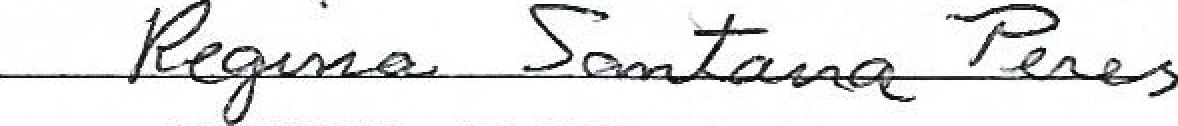 Regina Santana Peres